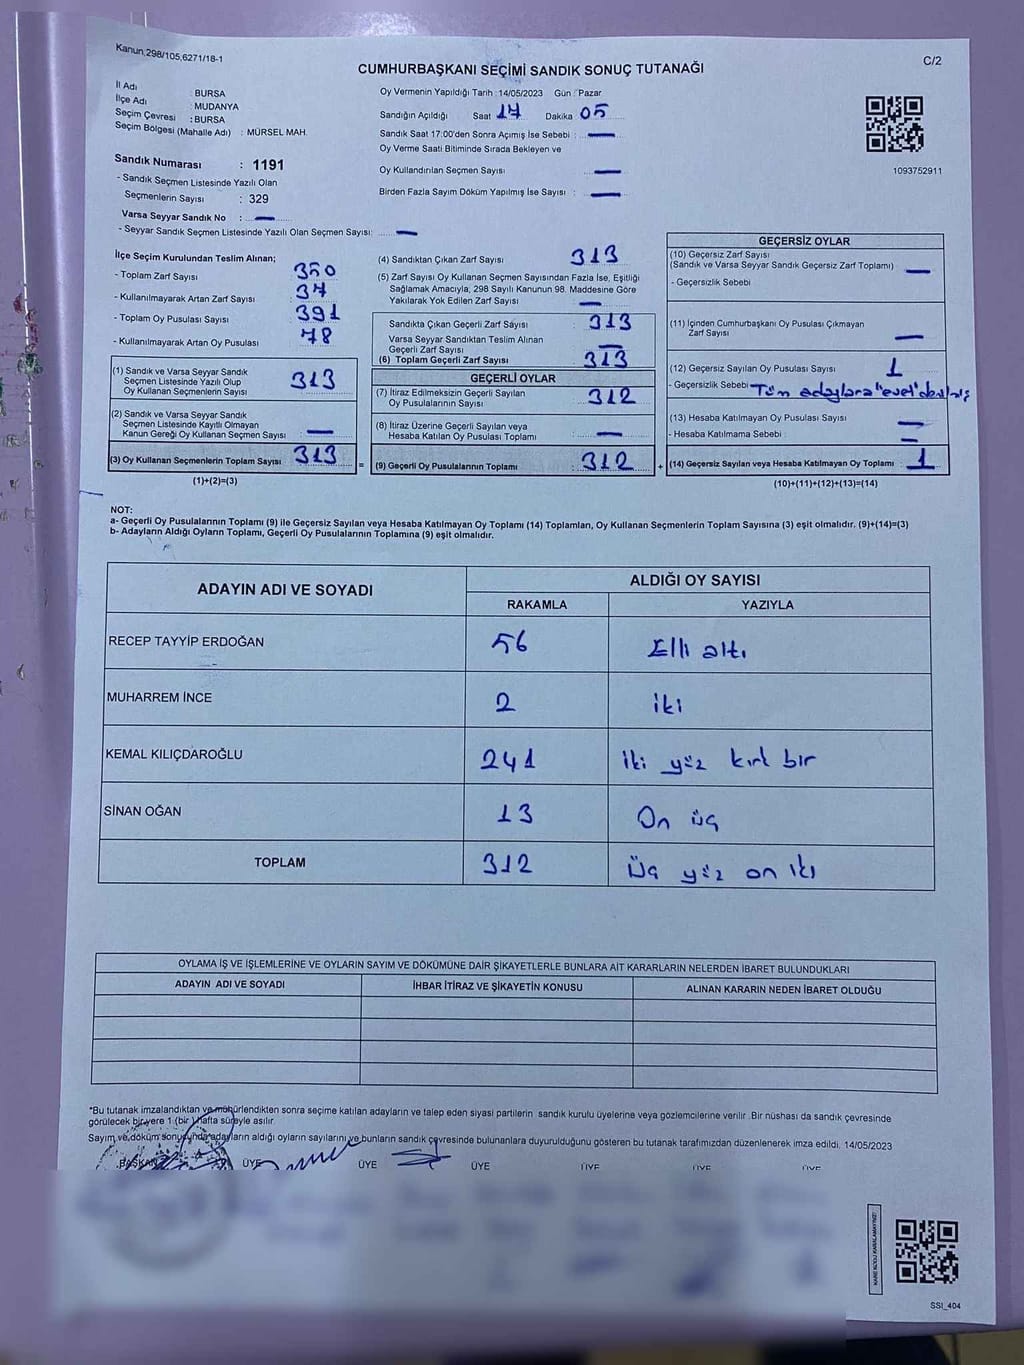 Kanun,298/105,6271/18-1
C/2
CUMHURBAŞKANI SEÇİMİ SANDIK SONUÇ TUTANAĞI
İl Adı : BURSA
İlçe Adı : MUDANYA
Seçim Çevresi : BURSA
Seçim Bölgesi (Mahalle Adı) : MÜRSEL MAH.
Sandık Numarası : 1191
- Sandık Seçmen Listesinde Yazılı Olan
Seçmenlerin Sayısı : 329
Varsa Seyyar Sandık No : —
- Seyyar Sandık Seçmen Listesinde Yazılı Olan Seçmen Sayısı: —
Oy Vermenin Yapıldığı Tarih : 14/05/2023 Gün : Pazar
Sandığın Açıldığı Saat 17 Dakika 05
Sandık Saat 17:00'den Sonra Açımış İse Sebebi : —
Oy Verme Saati Bitiminde Sırada Bekleyen ve
Oy Kullandırılan Seçmen Sayısı —
Birden Fazla Sayım Döküm Yapılmış İse Sayısı : —
1093752911
İlçe Seçim Kurulundan Teslim Alınan;
- Toplam Zarf Sayısı 350
- Kullanılmayarak Artan Zarf Sayısı : 37
- Toplam Oy Pusulası Sayısı : 391
- Kullanılmayarak Artan Oy Pusulası : 78
(1) Sandık ve Varsa Seyyar Sandık
Seçmen Listesinde Yazılı Olup
Oy Kullanan Seçmenlerin Sayısı 313
(2) Sandık ve Varsa Seyyar Sandık
Seçmen Listesinde Kayıtlı Olmayan
Kanun Gereği Oy Kullanan Seçmen Sayısı —
(3) Oy Kullanan Seçmenlerin Toplam Sayısı 313
(1)+(2)=(3)
=
(4) Sandıktan Çıkan Zarf Sayısı 313
(5) Zarf Sayısı Oy Kullanan Seçmen Sayısından Fazla İse, Eşitliği
Sağlamak Amacıyla, 298 Sayılı Kanunun 98. Maddesine Göre
Yakılarak Yok Edilen Zarf Sayısı —
Sandıkta Çıkan Geçerli Zarf Sayısı : 313
Varsa Seyyar Sandıktan Teslim Alınan
Geçerli Zarf Sayısı —
(6) Toplam Geçerli Zarf Sayısı 313
GEÇERLİ OYLAR
(7) İtiraz Edilmeksizin Geçerli Sayılan
Oy Pusulalarının Sayısı : 312
(8) İtiraz Üzerine Geçerli Sayılan veya
Hesaba Katılan Oy Pusulası Toplamı : —
(9) Geçerli Oy Pusulalarının Toplamı : 312
+
GEÇERSİZ OYLAR
(10) Geçersiz Zarf Sayısı
(Sandık ve Varsa Seyyar Sandık Geçersiz Zarf Toplamı) —
- Geçersizlik Sebebi
(11) İçinden Cumhurbaşkanı Oy Pusulası Çıkmayan
Zarf Sayısı —
(12) Geçersiz Sayılan Oy Pusulası Sayısı 1
- Geçersizlik Sebebi Tüm adaylara "evet" denilmiş
(13) Hesaba Katılmayan Oy Pusulası Sayısı —
- Hesaba Katılmama Sebebi —
(14) Geçersiz Sayılan veya Hesaba Katılmayan Oy Toplamı : 1
(10)+(11)+(12)+(13)=(14)
NOT:
a- Geçerli Oy Pusulalarının Toplamı (9) ile Geçersiz Sayılan veya Hesaba Katılmayan Oy Toplamı (14) Toplamları, Oy Kullanan Seçmenlerin Toplam Sayısına (3) eşit olmalıdır. (9)+(14)=(3)
b- Adayların Aldığı Oyların Toplamı, Geçerli Oy Pusulalarının Toplamına (9) eşit olmalıdır.
ADAYIN ADI VE SOYADI
ALDIĞI OY SAYISI
RAKAMLA YAZIYLA
RECEP TAYYİP ERDOĞAN 56 Elli altı
MUHARREM İNCE 2 iki
KEMAL KILIÇDAROĞLU 241 iki yüz kırk bir
SİNAN OĞAN 13 On üç
TOPLAM 312 Üç yüz on iki
OYLAMA İŞ VE İŞLEMLERİNE VE OYLARIN SAYIM VE DÖKÜMÜNE DAİR ŞİKAYETLERLE BUNLARA AİT KARARLARIN NELERDEN İBARET BULUNDUKLARI
ADAYIN ADI VE SOYADI İHBAR İTİRAZ VE ŞİKAYETİN KONUSU ALINAN KARARIN NEDEN İBARET OLDUĞU
*Bu tutanak imzalandıktan ve mühürlendikten sonra seçime katılan adayların ve talep eden siyasi partilerin sandık kurulu üyelerine veya gözlemcilerine verilir .Bir nüshası da sandık çevresinde
görülecek bir yere 1 (bir ) hafta süreyle asılır.
Sayım ve döküm sonusunda adayların aldığı oyların sayılarını ve bunların sandık çevresinde bulunanlara duyurulduğunu gösteren bu tutanak tarafımızdan düzenlenerek imza edildi. 14/05/2023
BAŞKAN ÜYE ÜYE ÜYE ÜYE ÜYE ÜYE
KARE KODU KARALAMAYINIZ!
SSI_404